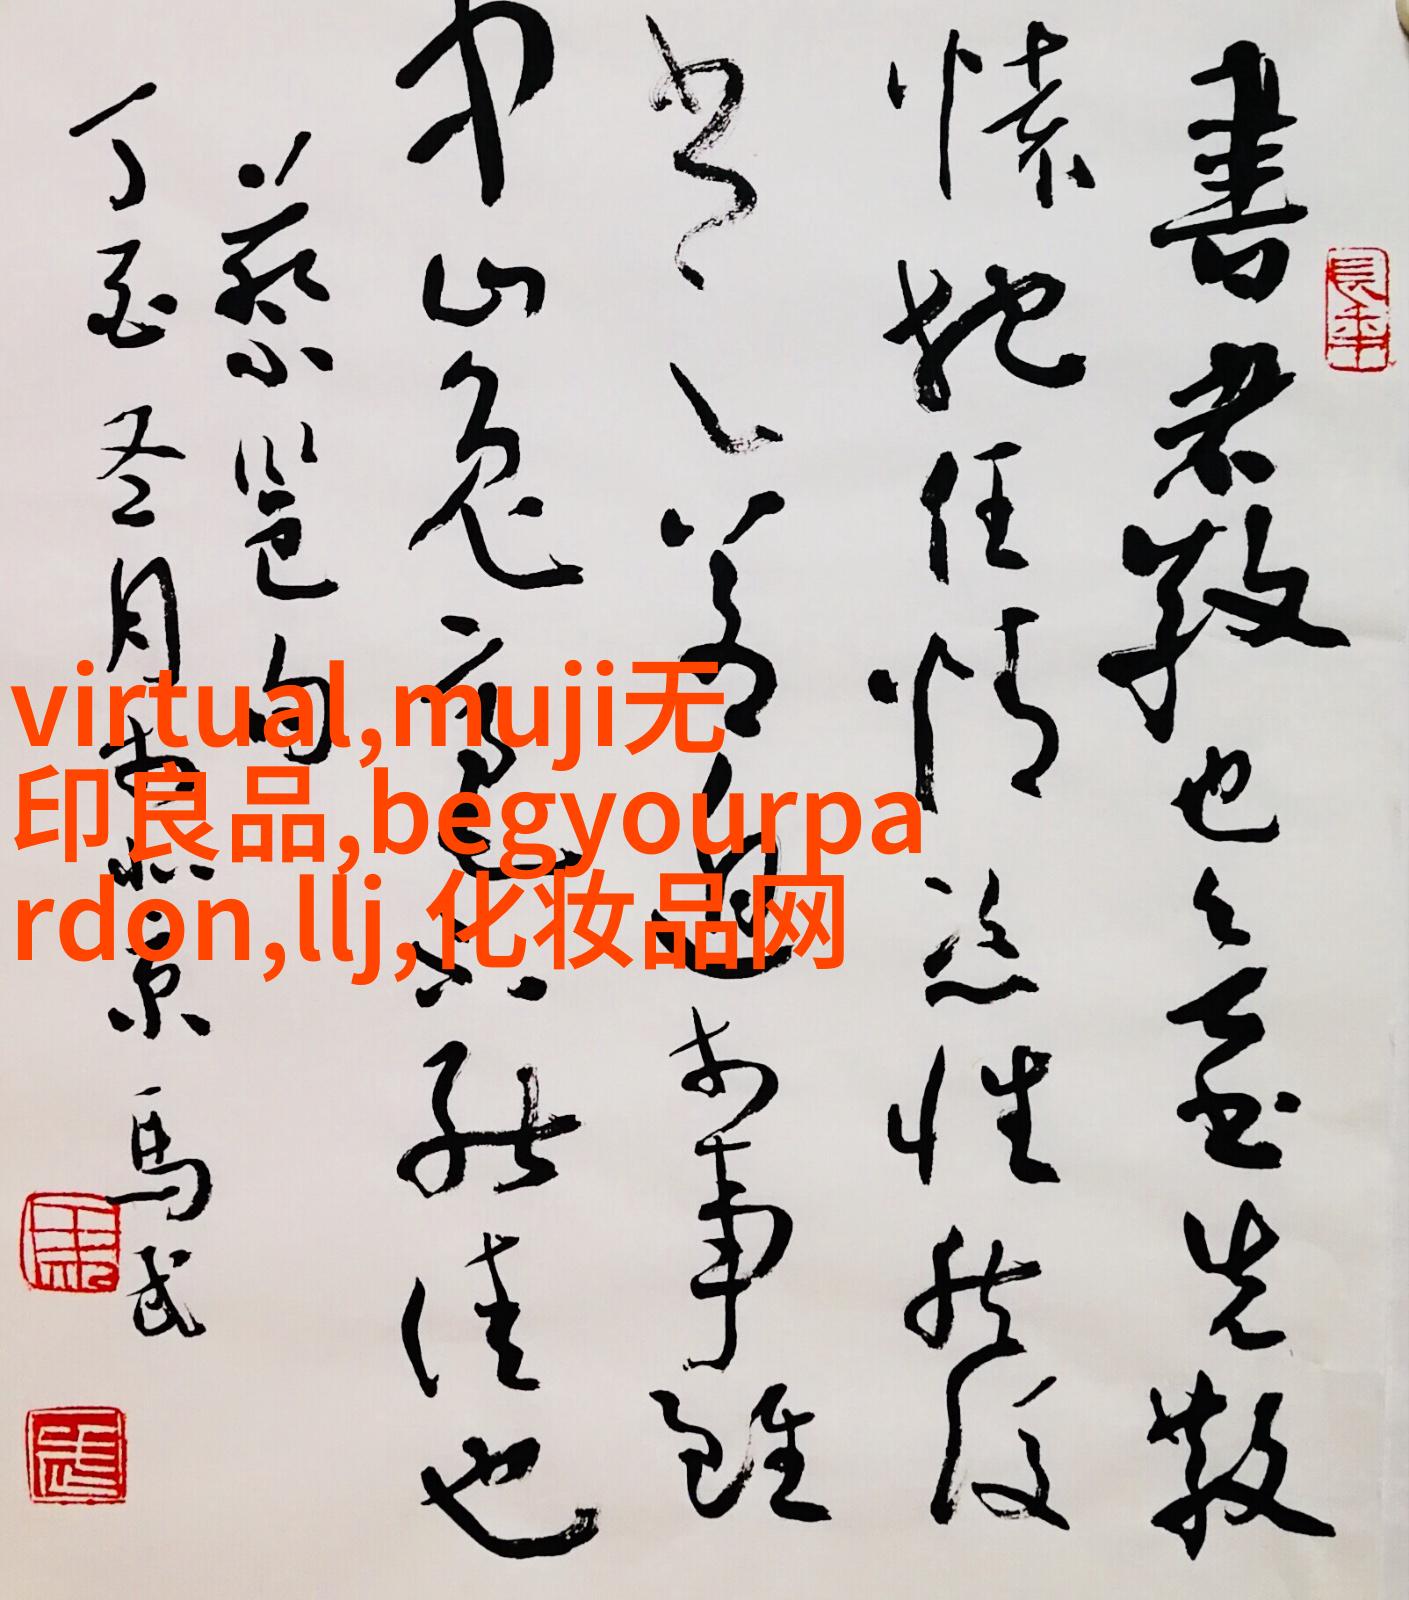 書者散也欲書先散
懷抱任情恣性然後
書之若迫於事雖
中山兔毫不能佳也
蔡邕句
丁酉冬月京馬武
virtual,muji无
印良品,begyourpa
rdon,llj,化妆品网